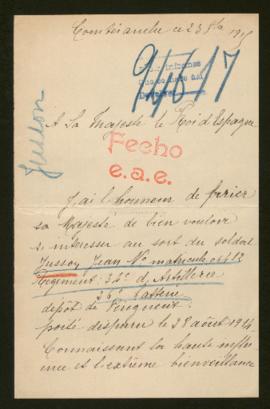 Combéranche ce 23 8bre 1915
94617
A Sa Majesté le Roi d'Espagne
Jussoy
Fecho
e.a.e.
J'ai l'honneur de prier
sa Majesté de bien vouloir
s'interesser au sort du soldat
Jussoy Jean No matricule
Regiment 34e d'Artillerie
Batterie
dépôt de Périgueux
porté disparu le 28 août 1914
Connaissant la haute influ
ence et l'extrême bienveillance